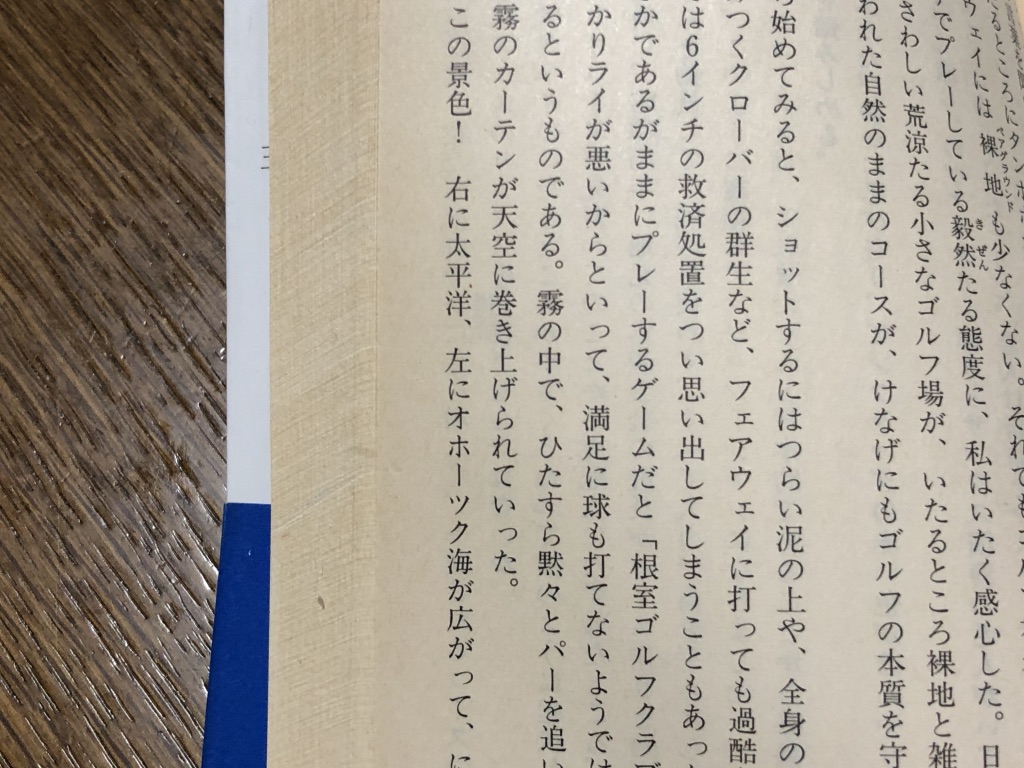 るところにタンポ
ウェイには裸地も少なくない。それでもゴル
ベアグラウンド
でプレーしている毅然たる態度に、私はいたく感心した。日
きぜん
さわしい荒涼たる小さなゴルフ場が、いたるところ裸地と雑
われた自然のままのコースが、けなげにもゴルフの本質を守
始めてみると、ショットするにはつらい泥の上や、全身の
つくクローバーの群生など、フェアウェイに打っても過酷
は6インチの救済処置をつい思い出してしまうこともあっ
かであるがままにプレーするゲームだと「根室ゴルフクラブ
かりライが悪いからといって、満足に球も打てないようでは
るというものである。霧の中で、ひたすら黙々とパーを追い
霧のカーテンが天空に巻き上げられていった。
この景色！　右に太平洋、左にオホーツク海が広がって、に